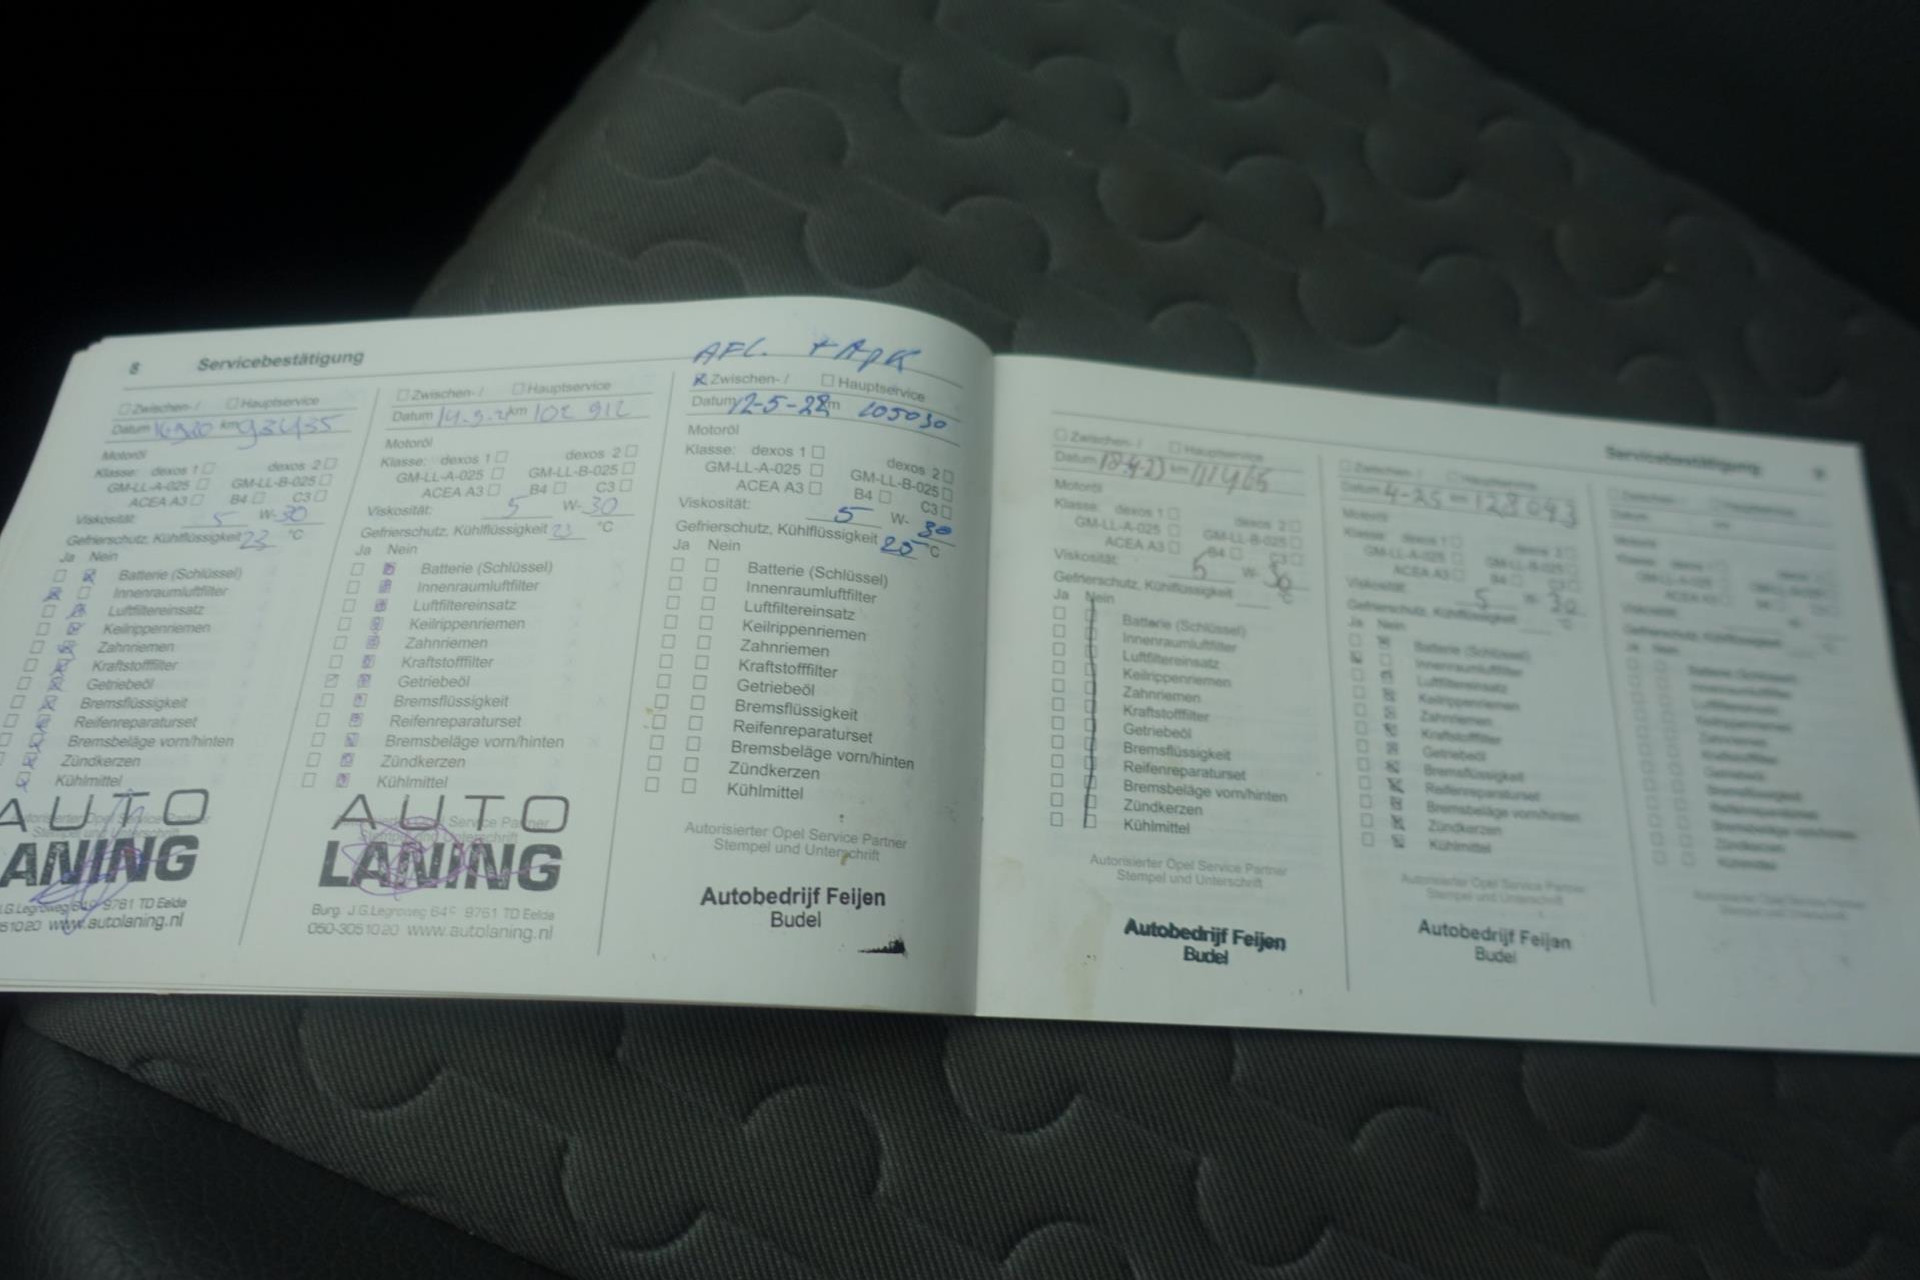 8 Servicebestätigung
Zwischen- / Hauptservice
Datum km 93435
Motoröl
Klasse: dexos 1 dexos 2
GM-LL-A-025 GM-LL-B-025
ACEA A3 B4 C3
Viskosität: 5 W- 30
Gefrierschutz, Kühlflüssigkeit 23 °C
Ja Nein
Batterie (Schlüssel)
Innenraumluftfilter
Luftfiltereinsatz
Keilrippenriemen
Zahnriemen
Kraftstofffilter
Getriebeöl
Bremsflüssigkeit
Reifenreparaturset
Bremsbeläge vorn/hinten
Zündkerzen
Kühlmittel
AUTO
LANING
J.G.Legroweg 9761 TD Eelde
www.autolaning.nl
Zwischen- / Hauptservice
Datum km 102 912
Motoröl
Klasse: dexos 1 dexos 2
GM-LL-A-025 GM-LL-B-025
ACEA A3 B4 C3
Viskosität: 5 W- 30
Gefrierschutz, Kühlflüssigkeit 23 °C
Ja Nein
Batterie (Schlüssel)
Innenraumluftfilter
Luftfiltereinsatz
Keilrippenriemen
Zahnriemen
Kraftstofffilter
Getriebeöl
Bremsflüssigkeit
Reifenreparaturset
Bremsbeläge vorn/hinten
Zündkerzen
Kühlmittel
AUTO
LANING
Burg. J.G.Legroweg 9761 TD Eelde
050-3051020 www.autolaning.nl
AFL. + APK
Zwischen- / Hauptservice
Datum 12-5-22 km 105030
Motoröl
Klasse: dexos 1 dexos 2
GM-LL-A-025 GM-LL-B-025
ACEA A3 B4 C3
Viskosität: 5 W- 30
Gefrierschutz, Kühlflüssigkeit 25 °C
Ja Nein
Batterie (Schlüssel)
Innenraumluftfilter
Luftfiltereinsatz
Keilrippenriemen
Zahnriemen
Kraftstofffilter
Getriebeöl
Bremsflüssigkeit
Reifenreparaturset
Bremsbeläge vorn/hinten
Zündkerzen
Kühlmittel
Autorisierter Opel Service Partner
Stempel und Unterschrift
Autobedrijf Feijen
Budel
Servicebestätigung 9
Zwischen- / Hauptservice
Datum 18-4-23 km 111465
Motoröl
Klasse: dexos 1 dexos 2
GM-LL-A-025 GM-LL-B-025
ACEA A3 B4 C3
Viskosität: 5 W- 30
Gefrierschutz, Kühlflüssigkeit °C
Ja Nein
Batterie (Schlüssel)
Innenraumluftfilter
Luftfiltereinsatz
Keilrippenriemen
Zahnriemen
Kraftstofffilter
Getriebeöl
Bremsflüssigkeit
Reifenreparaturset
Bremsbeläge vorn/hinten
Zündkerzen
Kühlmittel
Autorisierter Opel Service Partner
Stempel und Unterschrift
Autobedrijf Feijen
Budel
Zwischen- / Hauptservice
Datum 4-25 km 128093
Motoröl
Klasse: dexos 1 dexos 2
GM-LL-A-025 GM-LL-B-025
ACEA A3 B4 C3
Viskosität: 5 W- 30
Gefrierschutz, Kühlflüssigkeit °C
Ja Nein
Batterie (Schlüssel)
Innenraumluftfilter
Luftfiltereinsatz
Keilrippenriemen
Zahnriemen
Kraftstofffilter
Getriebeöl
Bremsflüssigkeit
Reifenreparaturset
Bremsbeläge vorn/hinten
Zündkerzen
Kühlmittel
Autorisierter Opel Service Partner
Stempel und Unterschrift
Autobedrijf Feijen
Budel